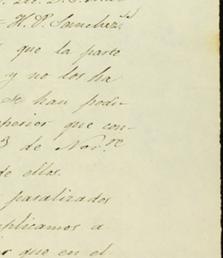 = H. P. Sanchez
que la parte
y no los ha
Se han podi-
perior que con-
3 de Nov.re
de ellos.
paralizados
mplicamos a
ir que en el